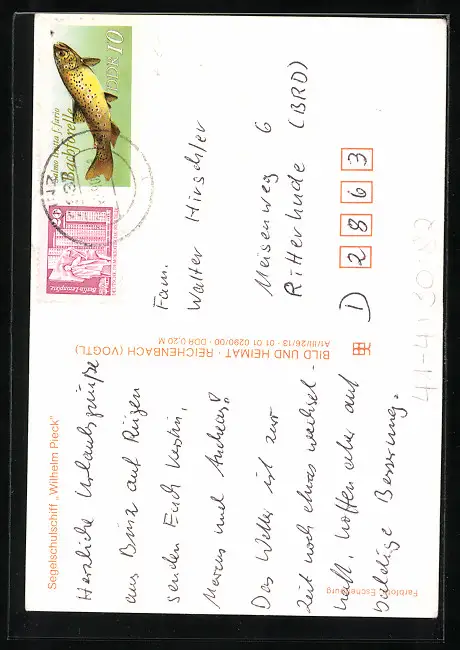 Segelschulschiff „Wilhelm Pieck"
Herzliche Urlaubsgrüße
aus Binz auf Rügen
senden Euch Kerstin,
Marcus und Andreas!
Das Wetter ist zur
Zeit noch etwas wechsel-
haft, hoffen aber auf
baldige Besserung.
Farbfoto: Eschenburg
BILD UND HEIMAT · REICHENBACH (VOGTL)
A1/III/26/13 · 01 01 0290/00 · DDR 0,20 M
Salmo trutta f. fario
Bachforelle
DDR 10
Berlin-Leninplatz
Fam.
Walter Hirschler
Meisenweg 6
Ritterhude (BRD)
D 2863